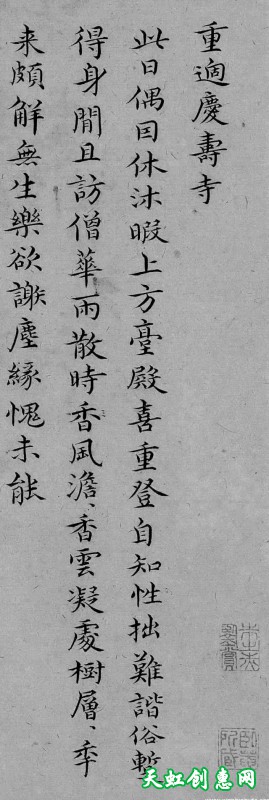 重過慶壽寺
此日偶因休沐暇上方臺殿喜重登自知性拙難諧俗暫
得身閒且訪僧華雨散時香風澹、香雲凝處樹層、年
来頗解無生樂欲謝塵緣愧未能
天虹创惠网